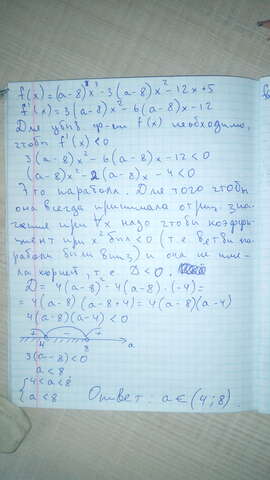 f(x)=(a-8)x³-3(a-8)x²-12x+5
f'(x)=3(a-8)x²-6(a-8)x-12
Для убыв. ф-ии f(x) необходимо,
чтобы f'(x)<0
3(a-8)x²-6(a-8)x-12<0
(a-8)x²-2(a-8)x-4<0
Это парабола. Для того чтобы
она всегда принимала отриц. зна-
чение при ∀x надо чтобы коэффи-
циент при x² был <0 (т.е. ветви па-
раболы были вниз) и она не име-
ла корней, т.е. D<0.
D= 4(a-8)²-4(a-8)·(-4)=
= 4(a-8)(a-8+4)=4(a-8)(a-4)
4(a-8)(a-4)<0
+ - +
4 8 a
3(a-8)<0
a<8
{4<a<8
a<8
Ответ: a∈(4;8).